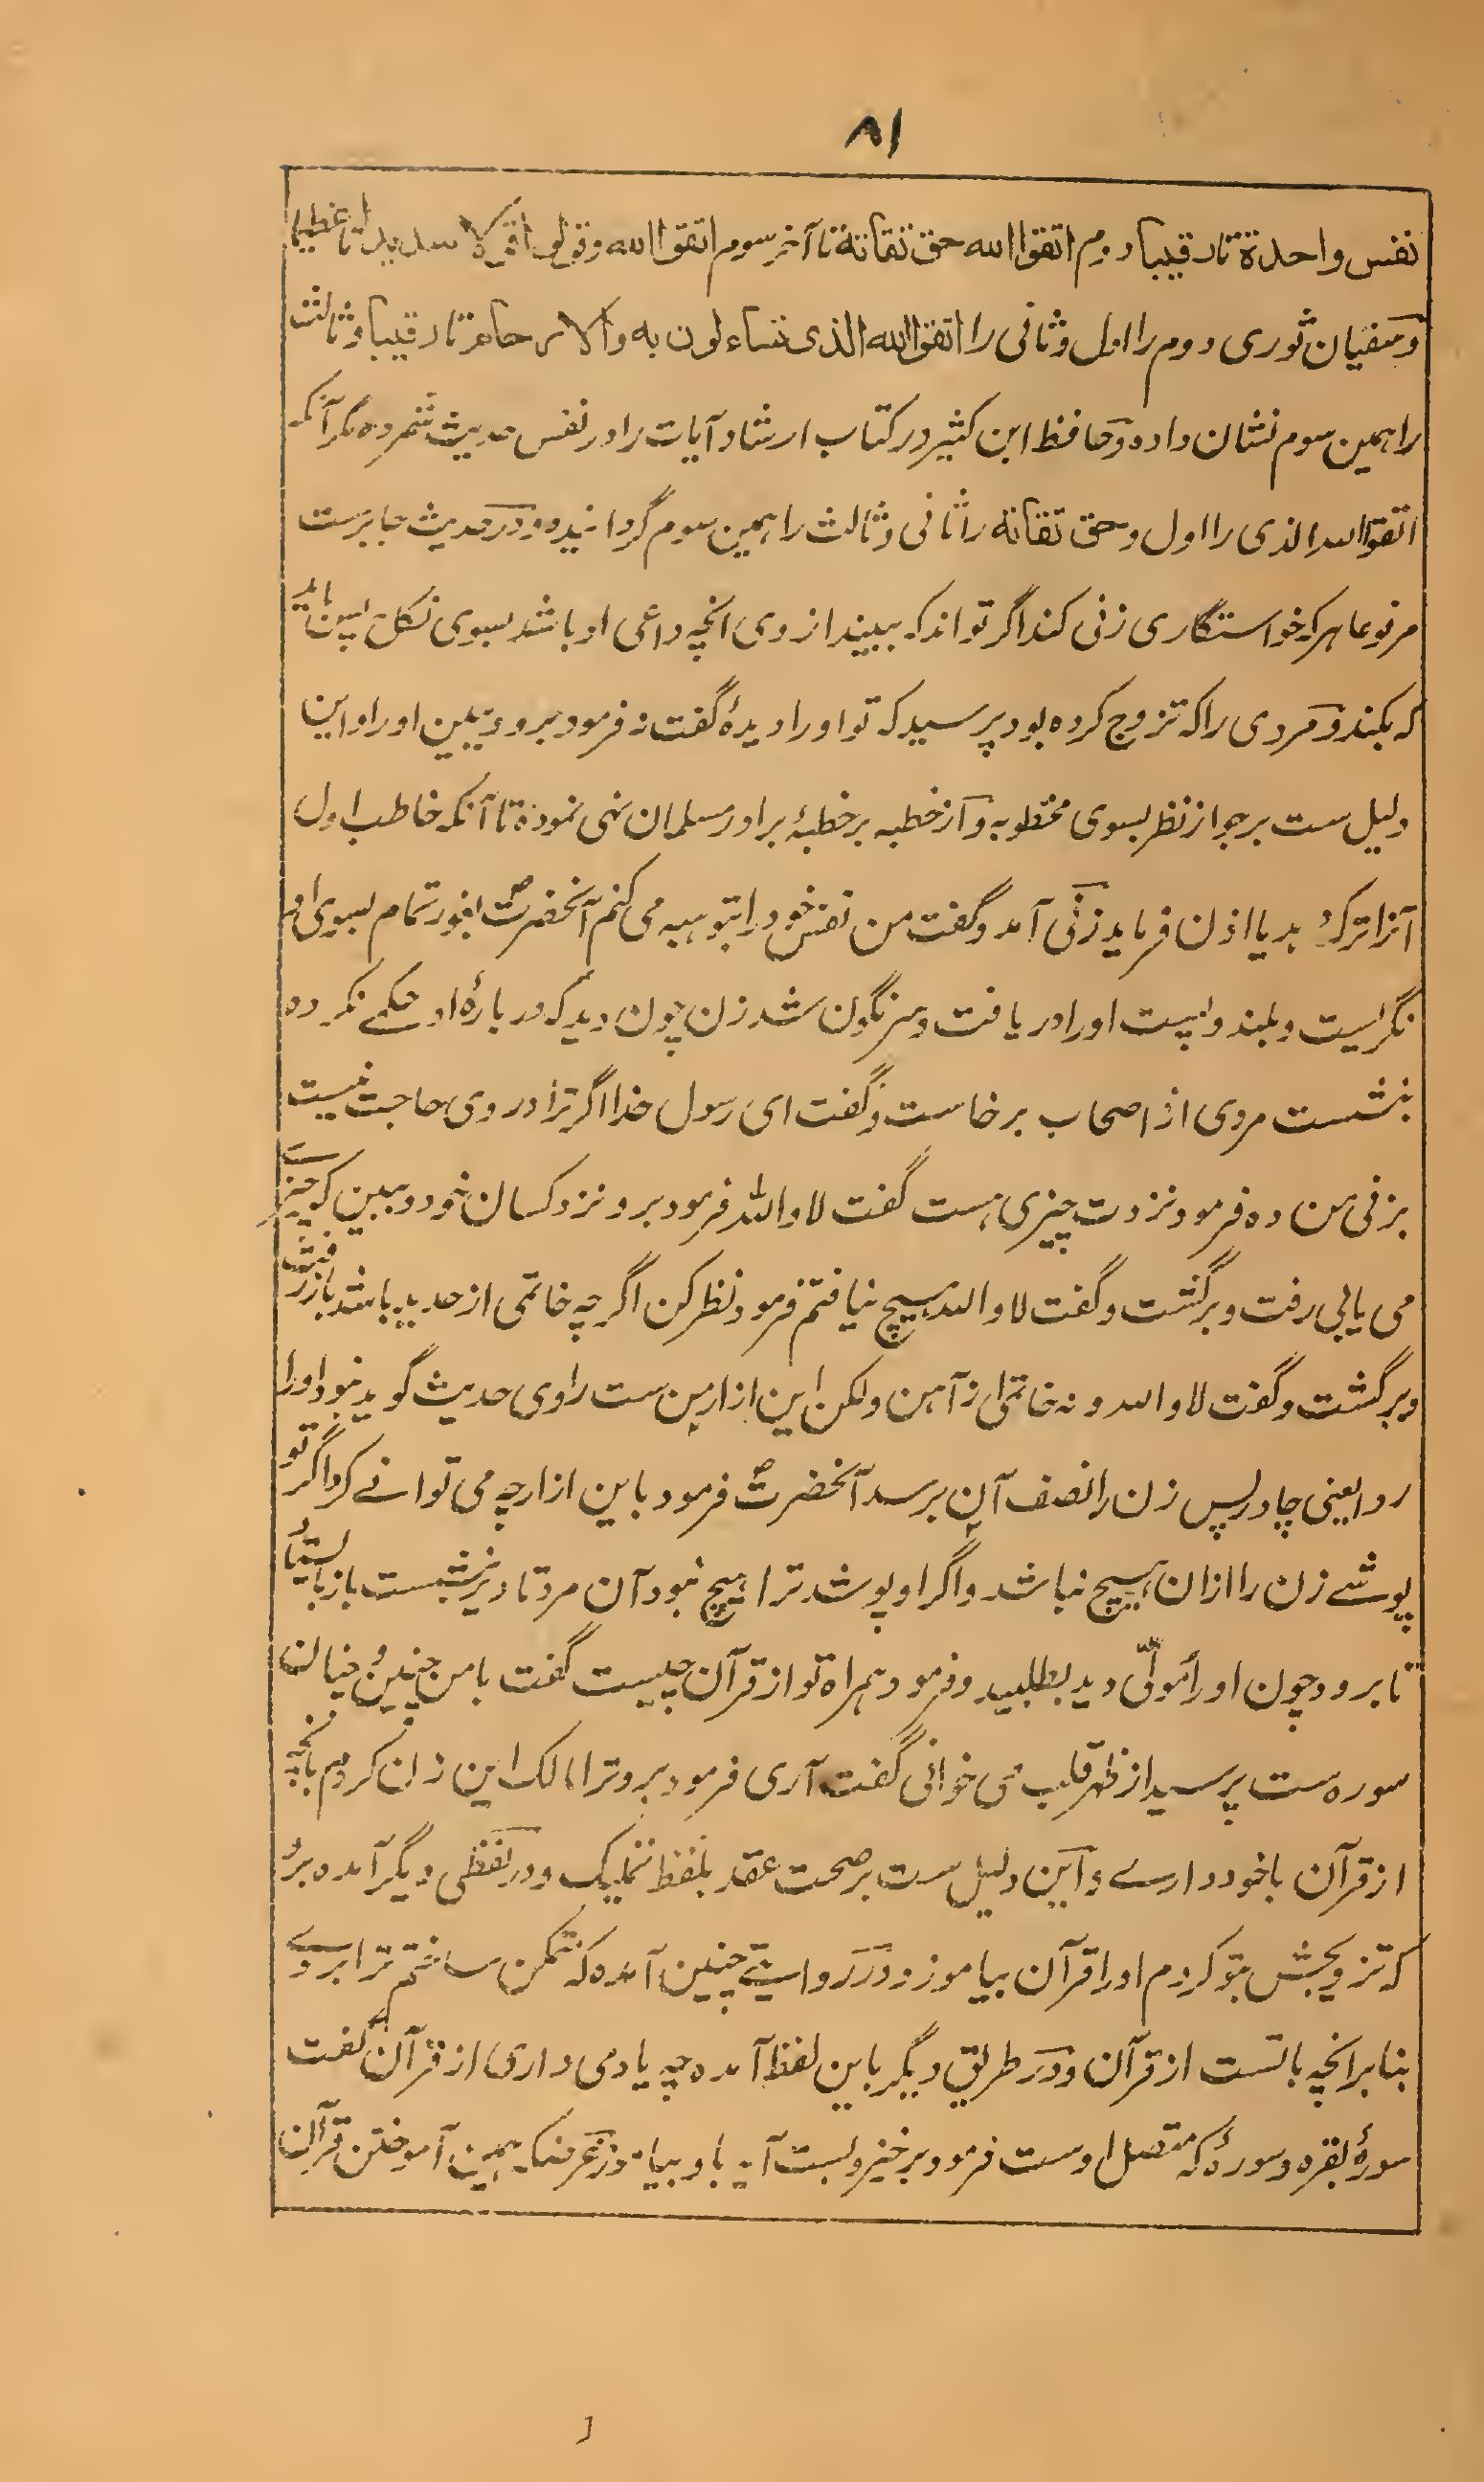 ۸۱
نفس واحدة تا رقیبا دوم اتقوا الله حق تقاته تا آخر سوم اتقوا الله وقولوا قولا سدیدا تا عظیما
وسفیان ثوری دوم را اول وثانی را اتقوا الله الذی تساءلون به والارحام تا رقیبا وثالث
را همین سوم نشان داده وحافظ ابن کثیر در کتاب ارشاد آیات را در نفس حدیث شمرده مگر آنکه
اتقوا الله الذی را اول وحق تقاته را ثانی وثالث را همین سوم گردانیده ودر حدیث جابرست
مرفوعا هر که خواستگاری زنی کند اگر تواند که ببیند از وی انچه داعی او باشد بسوی نکاح پس باید
که بکند ومردی را که تزوج کرده بود پرسید که تو او را دیدۀ گفت نه فرمود برو وببین او را واین
دلیل ست بر جواز نظر بسوی مخطوبه واز خطبه بر خطبۀ برادر مسلمان نهی نموده تا آنکه خاطب اول
آنرا ترک دهد یا اذن فرماید زنی آمد وگفت من نفس خود را بتو هبه می کنم آنحضرت بغور تمام بسوی او
نگریست وبلند وپست او را دریافت وسرنگون شد زن چون دید که در بارۀ او حکمے نکرده
بنشست مردی از اصحاب برخاست وگفت ای رسول خدا اگر ترا در وی حاجت نیست
بزنی من ده فرمود نزدت چیزی هست گفت لا والله فرمود برو نزد کسان خود وببین که چیزے
می یابی رفت وبرگشت وگفت لا والله هیچ نیافتم فرمود نظر کن اگر چه خاتمی از حدید باشد باز رفت
وبرگشت وگفت لا والله ونه خاتمی از آهن ولکن این ازار من ست راوی حدیث گوید نبود او را
ردا یعنی چادر پس زن را نصف آن برسد آنحضرت فرمود باین ازار چه می توانے کرد اگر تو
پوشے زن را ازان هیچ نباشد واگر او پوشد ترا هیچ نبود آن مرد تا دیر بنشست باز بایستاد
تا برود چون او را مولّی دید بطلبید وفرمود همراه تو از قرآن چیست گفت با من چنین وچنان
سوره ست پرسید از ظهر قلب می خوانی گفت آری فرمود برو ترا مالک این زن کردم بانچه
از قرآن با خود دارے واین دلیل ست بر صحت عقد بلفظ تملیک ودر لفظی دیگر آمده برو
که تزویجش بتو کردم او را قرآن بیاموز ودر روایتے چنین آمده که متمکن ساختم ترا بر وے
بنا بر انچه با تست از قرآن ودر طریق دیگر باین لفظ آمده چه یاد می داری از قرآن گفت
سورۀ بقره وسورۀ که متصل اوست فرمود برخیز وبست آیه باو بیاموز غرضکه همین آموختن قرآن